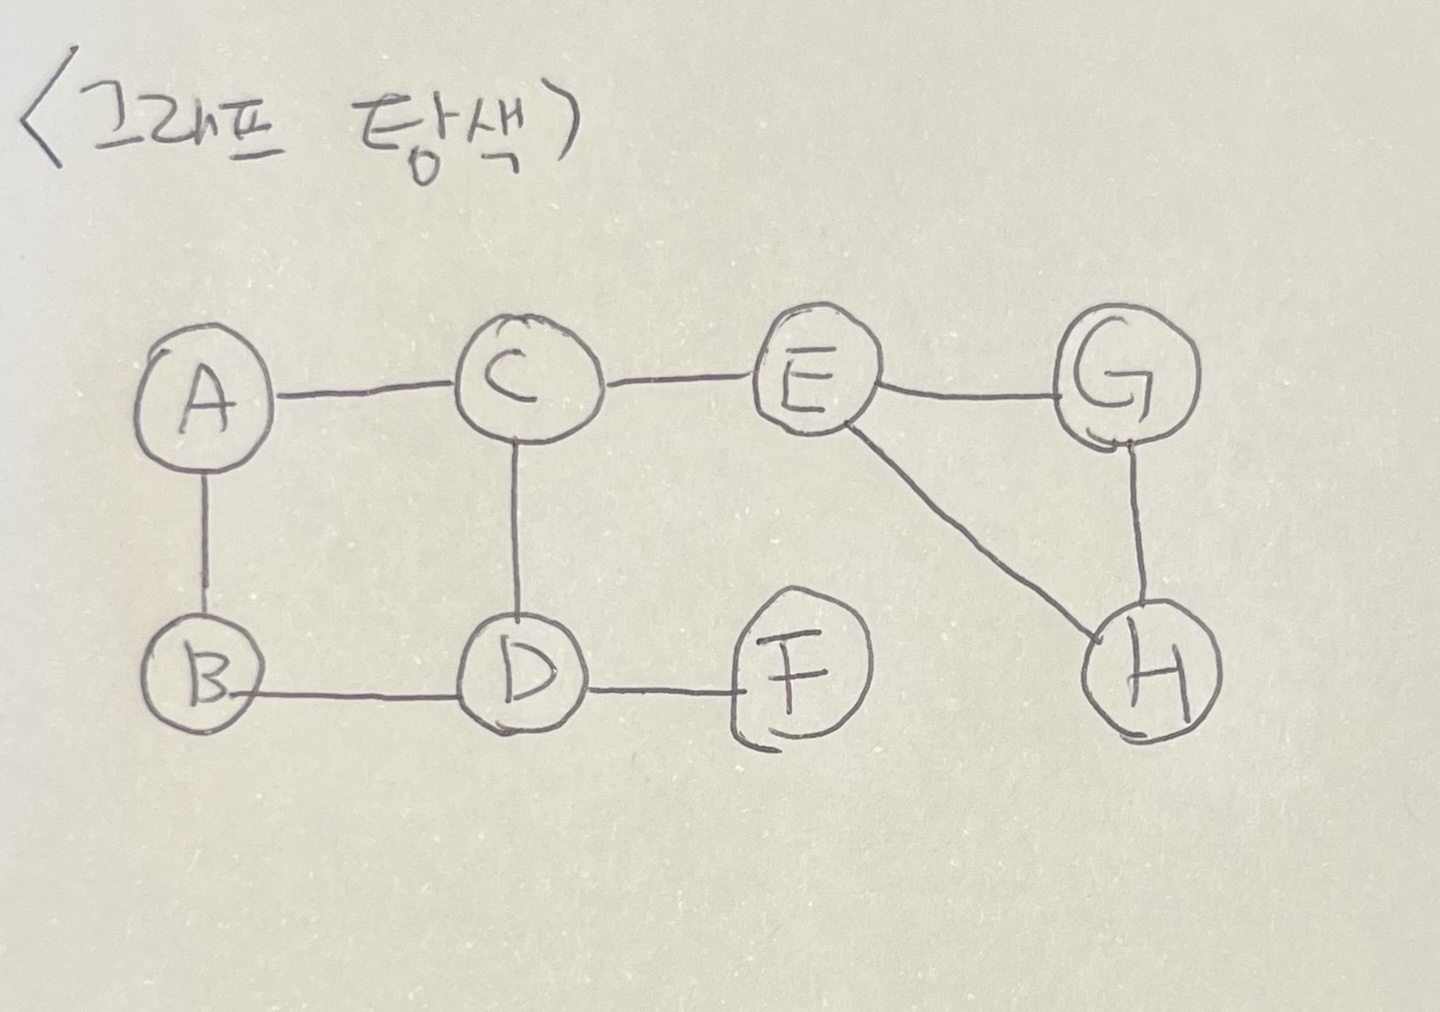 <그래프 탐색>
A C E G
B D F H